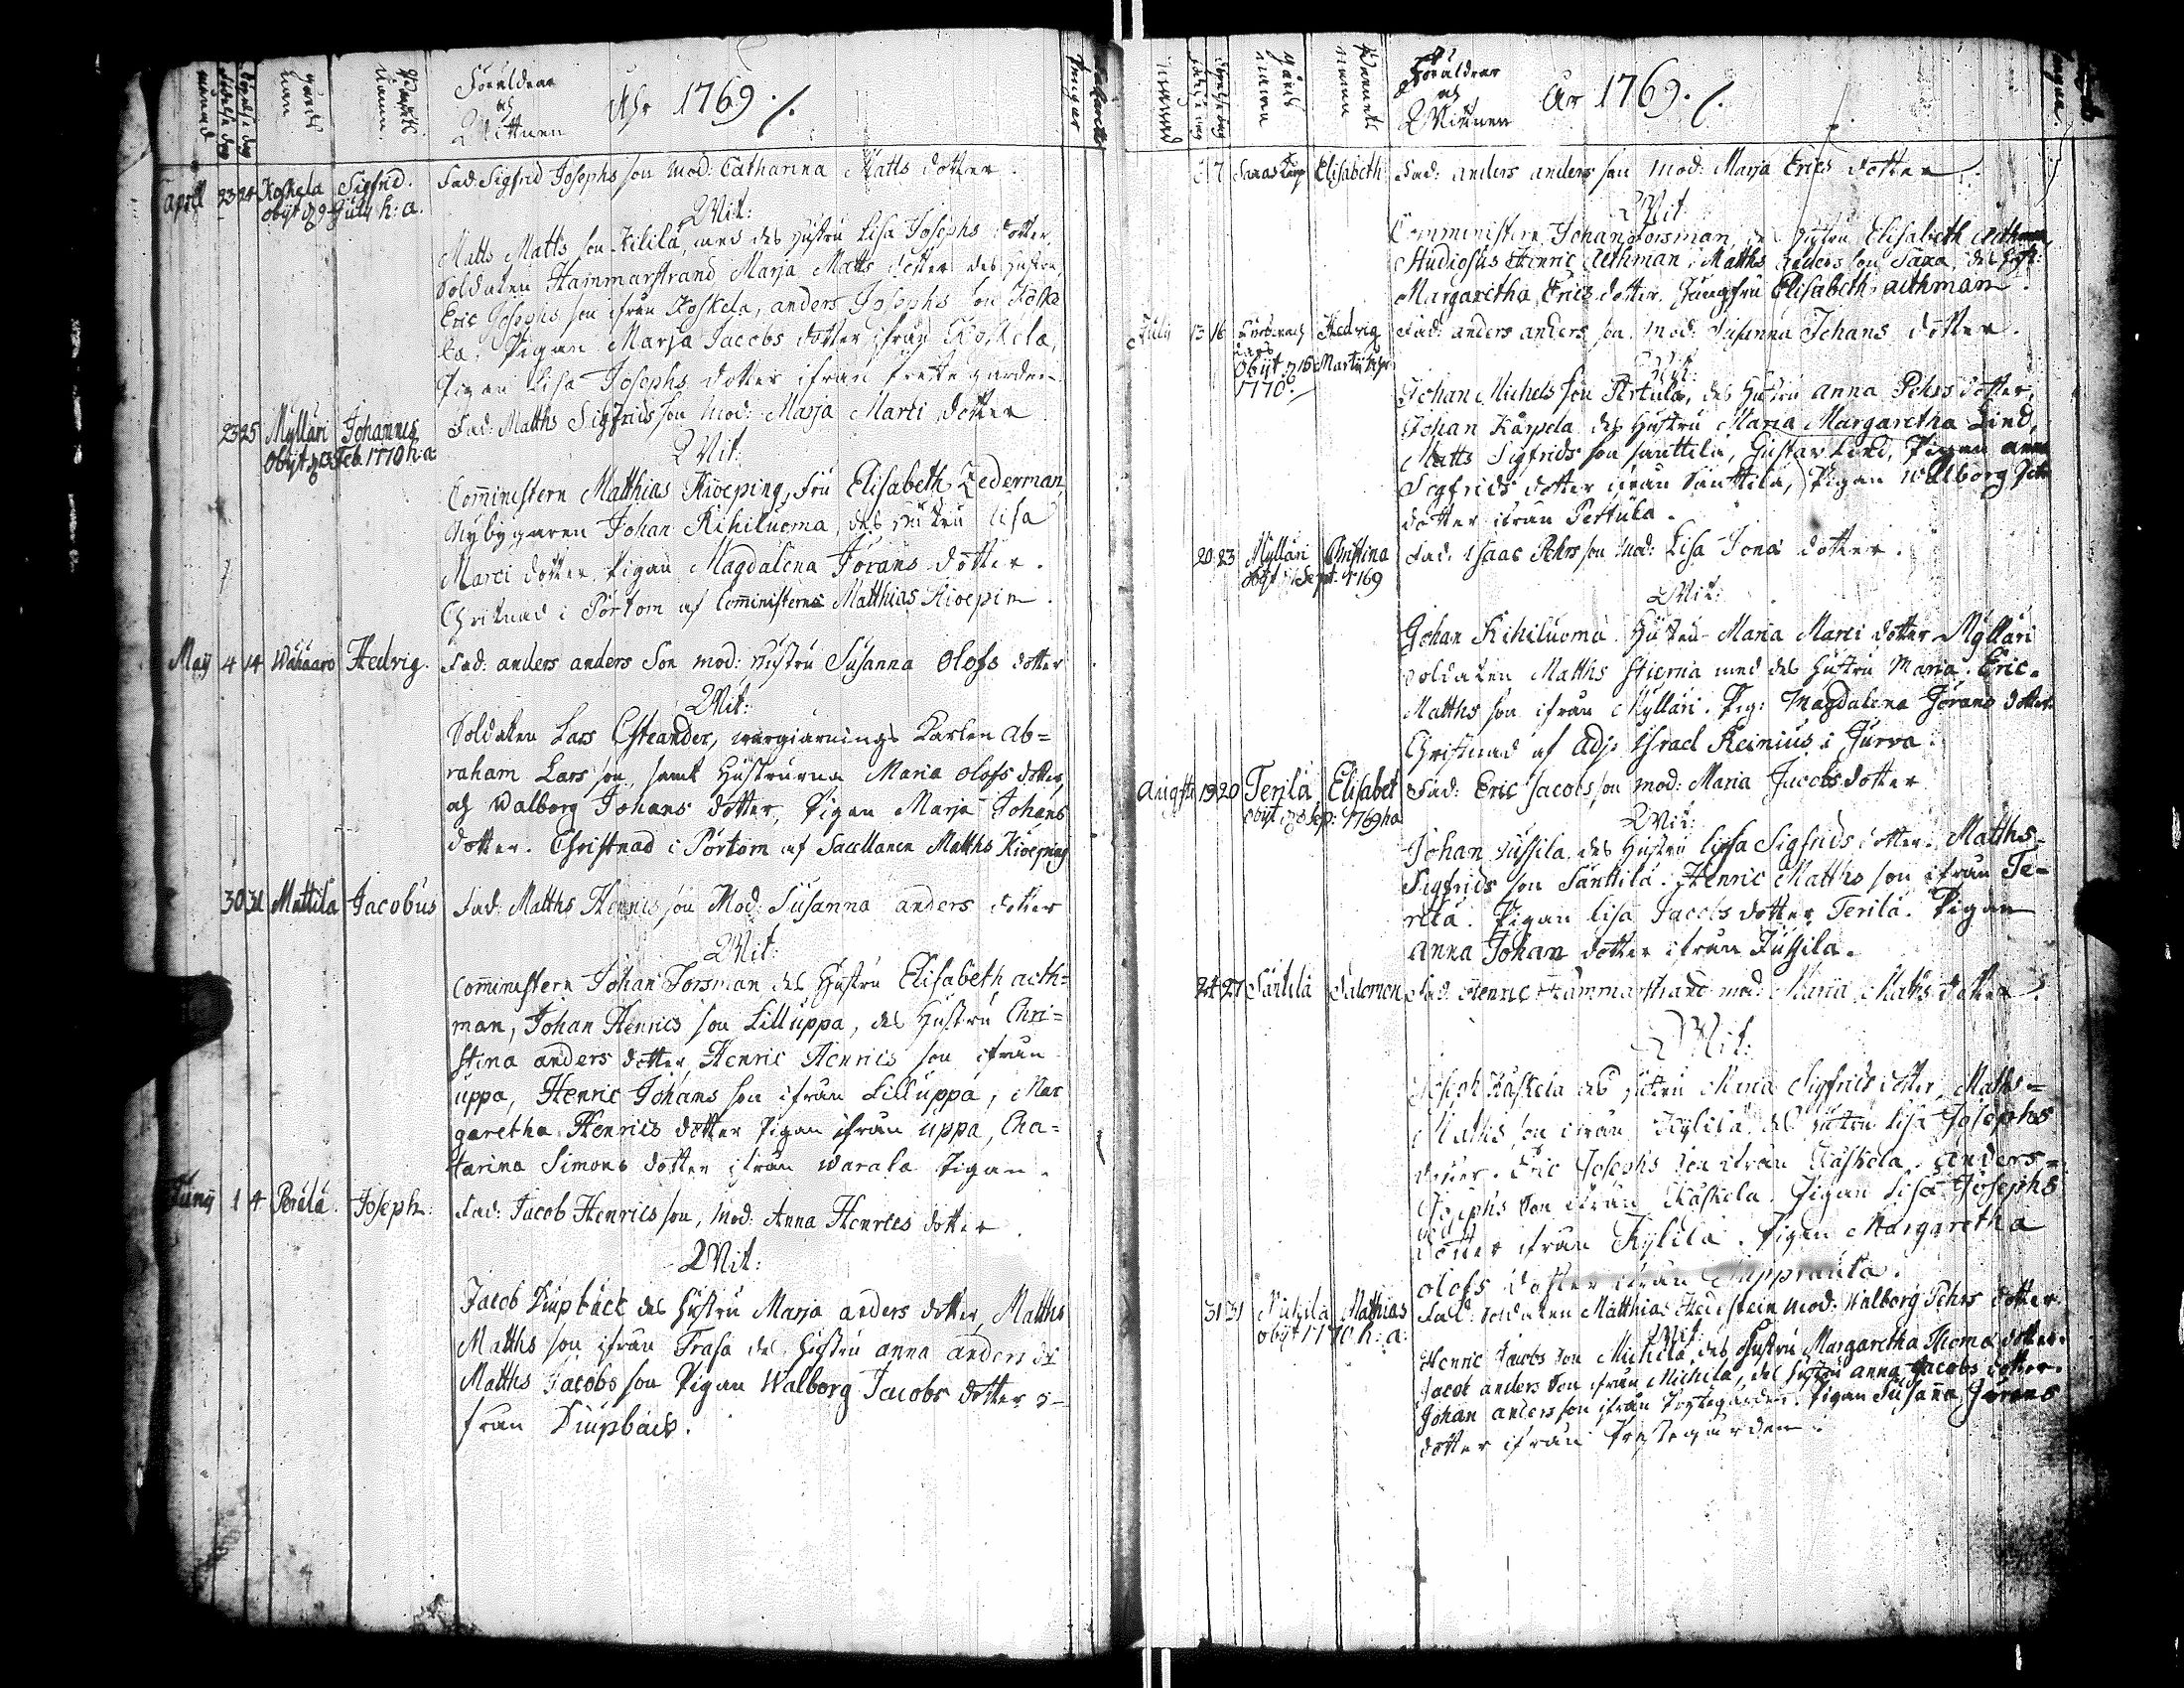 månad
födelse dag
döpelse dag
gårds
namn
Barnets
namn.
Föräldrar
och
Wittnen
Åhr 1769 ./.
April 23 24 Koskela Sigfrid. Fad: Sigfrid Josephs son Mod: Catharina Matts dotter.
obijt d 9 July h: a.
Wit:
Matts Matts son Kilila, med des Hustru Lisa Josephs dotter,
Soldaten Hammarstrand Marja Matts dotter des Hustru,
Eric Josephs son ifrån Koskela, anders Josephs son Koske
la, Pigan Marja Jacobs dotter ifrån Koskela,
Pigan Lisa Josephs dotter ifrån Prestegarden
23 25 Mylläri Johannes Fad: Matths Sigfrids son Mod: Marja Marci dotter
Obijt Feb. 1770 h: a:
Wit:
Comministern Matthias Kiöeping, Fru Elisabeth Zederman,
Nybygaren Johan Rihiluoma, des Hustru Lisa
Marci dotter, Pigan Magdalena Jörans dotter.
Christnad i Pörtom af Comministern Matthias Kiöepin.
Maij 4 14 Wähäaro Hedvig. Fad: anders anders Son mod: Hustru Susanna Olofs dotter
Wit:
Soldaten Lars Esteander, wargiärnings Karlen Ab=
raham Lars son, samt Hustrurna Maria Olofs dotter,
och Walborg Johans dotter, Pigan Marja Johans
dotter. Christnad i Pörtom af Sacellanen Matths Kiöeping
30 31 Mattila Jacobus Fad: Matths Henrics son Mod: Susanna anders dotter
Wit:
Comministern Johan Forsman des Hustru Elisabeth aeth=
man, Johan Henrics son Lilluppa, des Hustru Chri=
stina anders dotter, Henric Henrics son ifrån
uppa, Henric Johans son ifrån Lilluppa, Mar
garetha Henrics dotter Pigan ifrån uppa, Cha=
tarina Simons dotter ifrån Warala Pigan.
Junij 1 4 Perälä. Joseph. Fad: Jacob Henrics son, Mod: Anna Henrics dotter
Wit:
Jacob Diupbäck des Hustru Marja anders dotter, Matths
Matths son ifrån Frasa des Hustru anna anders dr
Matths Jacobs son Pigan Walborg Jacobs dotter i-
från Diupbäck.
gårds
namn
Barnets
namn
Föräldrar
och
Wittnen
År 1769 ./.
7 Elisabeth Fad: anders anders son Mod: Marja Erics dotter
Wit
Comministern Johan Forsman, des Hustru Elisabeth Aethman,
Studiosus Henric Aethman, Matths anders son Saxa, des Hustr:
Margaretha Erics dotter. Jungfru Elisabeth aethman.
July 13 16 Hedvig Fad: anders anders son. Mod: Susanna Johans dotter.
Obijt d 16 Martij Åhr
1770.
Wit:
Johan Michels son Pertula, des Hustru Anna Pehrs dotter,
Johan Karpela des Hustru Maria Margaretha Lind,
Matts Sigfrids son Santtila, Gustav Lind, Pigan anna
Sigfrids dotter ifrån Santtila, Pigan Walborg Joh
dotter ifrån Pertula.
20 23 Myllari Christina Fad: Isaac Pehrs son Mod: Lisa Jona dotter.
obijt Sept. 1769
Wit:
Johan Rihiluoma. Hustru Maria Marci dotter Myllari
Soldaten Matths Stierna med des Hustru Maria. Eric.
Matths son ifrån Myllari. Pig: Magdalena Jörans dotter
Christnad af Adj: Israel Reinius i Jurva.
Augsti 19 20 Terila Elisabet Fad: Eric Jacobs son mod: Maria Jacobs dotter
obijt d 8 Sep: 1769 h a
Wit:
Johan Jussila des Hustru Lissa Sigfrids dotter. Matths=
Sigfrids son Santtila. Henric Matths son ifrån Te-
rila. Pigan Lisa Jacobs dotter Terila. Pigan
anna Johan dotter ifrån Jussila.
24 27 Santila Salomon Fad: Henric Hammarstrand mod: Maria Matts dotter
Wit:
Joseph Kaskela des Hustru Maria Sigfrids dotter, Matths=
Matths son ifrån Kylila, des Hustru Lisa Josephs
dotter. Eric Josephs son ifrån Kaskela. Anders=
Josephs son ifrån Kaskela. Pigan Lisa Josephs
dotter ifrån Kylila. Pigan Margaretha
olofs dotter ifrån
31 31 Michila Mathias Fad: Soldaten Matthias Hedstein Mod: Walborg Pehrs dotter
obijt 1770 h: a:
Wit:
Henric Jacobs son Michila, des Hustru Margaretha Thoma dotter.
Jacob anders son ifrån Michila, des Hustru anna Jacobs dotter.
Johan anders son ifrån Prestegården. Pigan Susanna Jörans
dotter ifrån Prestegården.